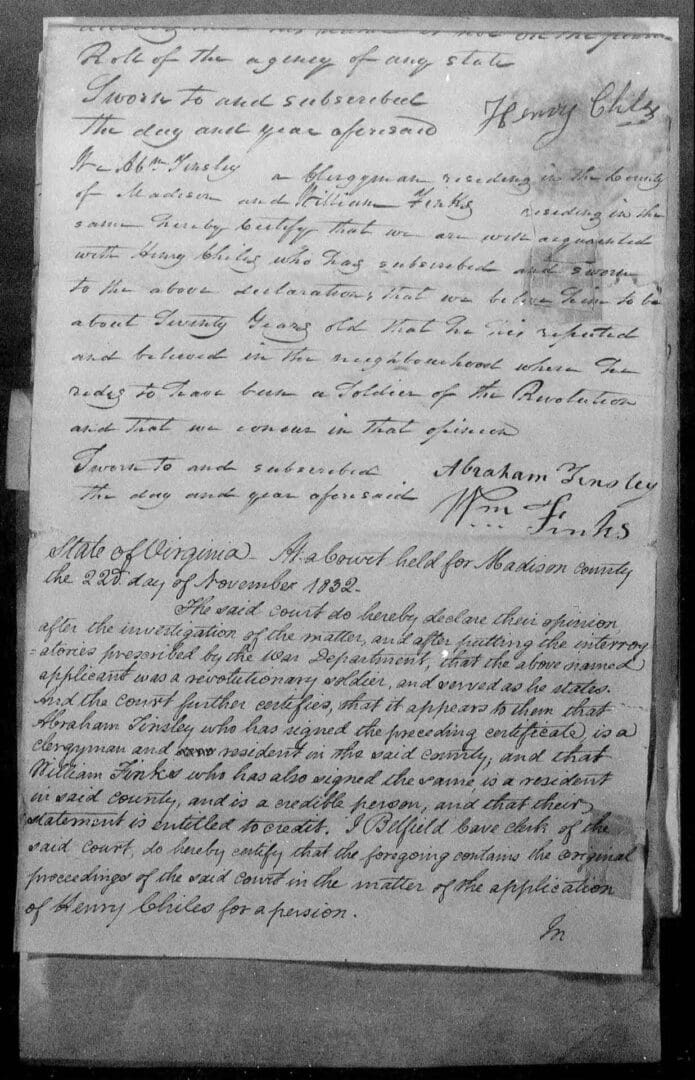 his name is not on the
Roll of the agency of any state
Sworn to and subscribed
the day and year aforesaid
Henry Chiles
We Abm Tinsley a Clergyman residing in the County
of Madison and William Finks residing in the
same hereby Certify that we are well acquainted
with Henry Chiles who has subscribed and sworn
to the above declaration, that we believe him to be
about Seventy Years old that he is reputed
and believed in the neighbourhood where he
redes to have been a Soldier of the Revolution
and that we concur in that opinion
Sworn to and subscribed
the day and year aforesaid
Abraham Tinsley
Wm Finks
State of Virginia - At a Court held for Madison county
the 22d. day of November 1832.
The said court do hereby declare their opinion
after the investigation of the matter, and after putting the interrog
=atories prescribed by the War Department, that the above named
applicant was a revolutionary soldier, and served as he states.
And the court further certifies, that it appears to them that
Abraham Tinsley who has signed the preceding certificate, is a
clergyman and resident in the said county, and that
William Finks who has also signed the same, is a resident
in said county, and is a credible person, and that their
statement is entitled to credit. I Belfield Cave clerk of the
said court, do hereby certify that the foregoing contains the original
proceedings of the said court in the matter of the application
of Henry Chiles for a pension.
In